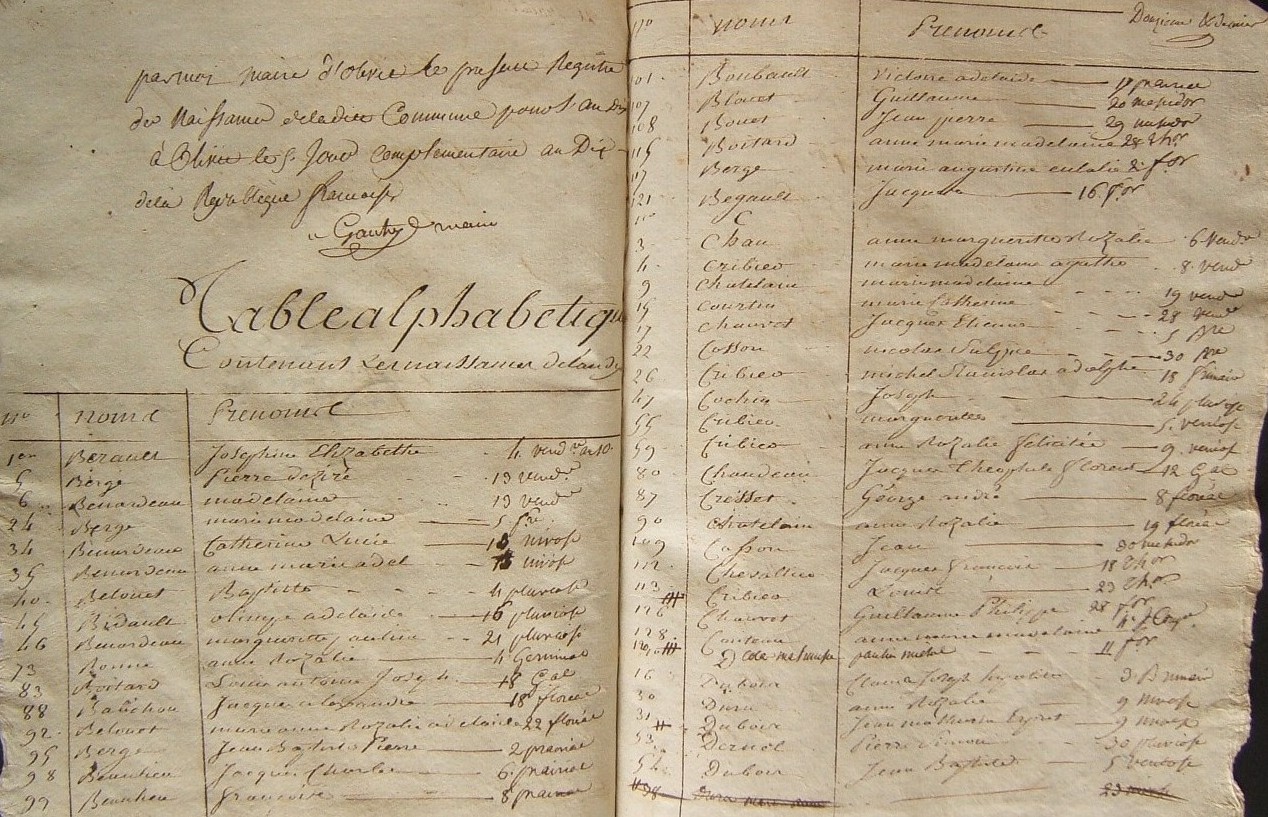 par moi maire d'Olivet le present Registre
de Naissance de la dite Commune pour l'an Dix
à Olivet le 5e Jour complementaire an Dix
de la Republique francaise
maire
Table alphabetique
Contenant les naissances de l'an Dix
Nos noms Prenoms
1er Berault Josephine Elizabethe 4 vendre an 10
5 Berge Pierre deziré 13 vendre
6 Benardeau madelaine 13 vendre
24 Berge marie madelaine 5 fre
34 Benardeau Catherine Lucie nivose
35 Benardeau anne marie adel nivose
40 Belouet Baptiste 4 pluviose
45 Bidault adelaide 16 pluviose
46 Benardeau margueritte pauline 21 pluviose
73 Bonne anne Rozalie 4 Germinal
83 Boitard Louis antoine Joseph 18 Gal
88 Jacques alexandre 18 floreal
92 Belouet marie anne Rozalie adelaide 22 floréal
95 Berge Jean Baptiste Pierre 2 prairial
98 Beaulieu Jacques Charles 6 prairial
99 Beaulieu francoise 8 prairial
nos noms Prenoms Douzieme & dernier
101 Boubault victoire adelaide 17 prairial
107 Blouet Guillaume 20 mesidor
108 Bouet Jean pierre 29 mesidor
115 Boitard anne marie madelaine 28 thor
117 Berge marie augustine eulalie 2 for
121 Begault Jacques 16 for
nos C
3 Chau anne margueritte Rozalie 6 vendre
4 Cribier marie madelaine agathe 8 vendre
9 Chatelain marie madelaine 19 vendre
15 Courtin marie Catherine 28 vendre
17 Chauvet Jacques Etienne 5 bre
22 Cosson nicolas Sulpice 30 bre
26 Cribier michel Stanislas adolphe 18 frimaire
47 Cochin Joseph 24 pluviose
55 Cribier margueritte 5 ventose
59 Cribier anne Rozalie felicitée 9 ventose
80 Chaudeau Jacques Theophile florent 12 Gal
87 Cresset George andré 8 floréal
90 Chatelain anne Rozalie 19 floréal
109 Casson Jean 30 mesidor
112 Chevallier Jacques francois 18 thor
113 Cribier Louise 23 thor
126 Chauvet Guillaume Philippe 28 for
128 Couteau anne marie madelaine 4 J. Comp.
11 for
16 Dubois Joseph 3 Brumaire
30 Duru anne Rozalie 9 nivose
31 Dubois Jean 9 nivose
53 Dernet Pierre Simon 30 pluviose
54 Dubois Jean Baptiste 5 ventose